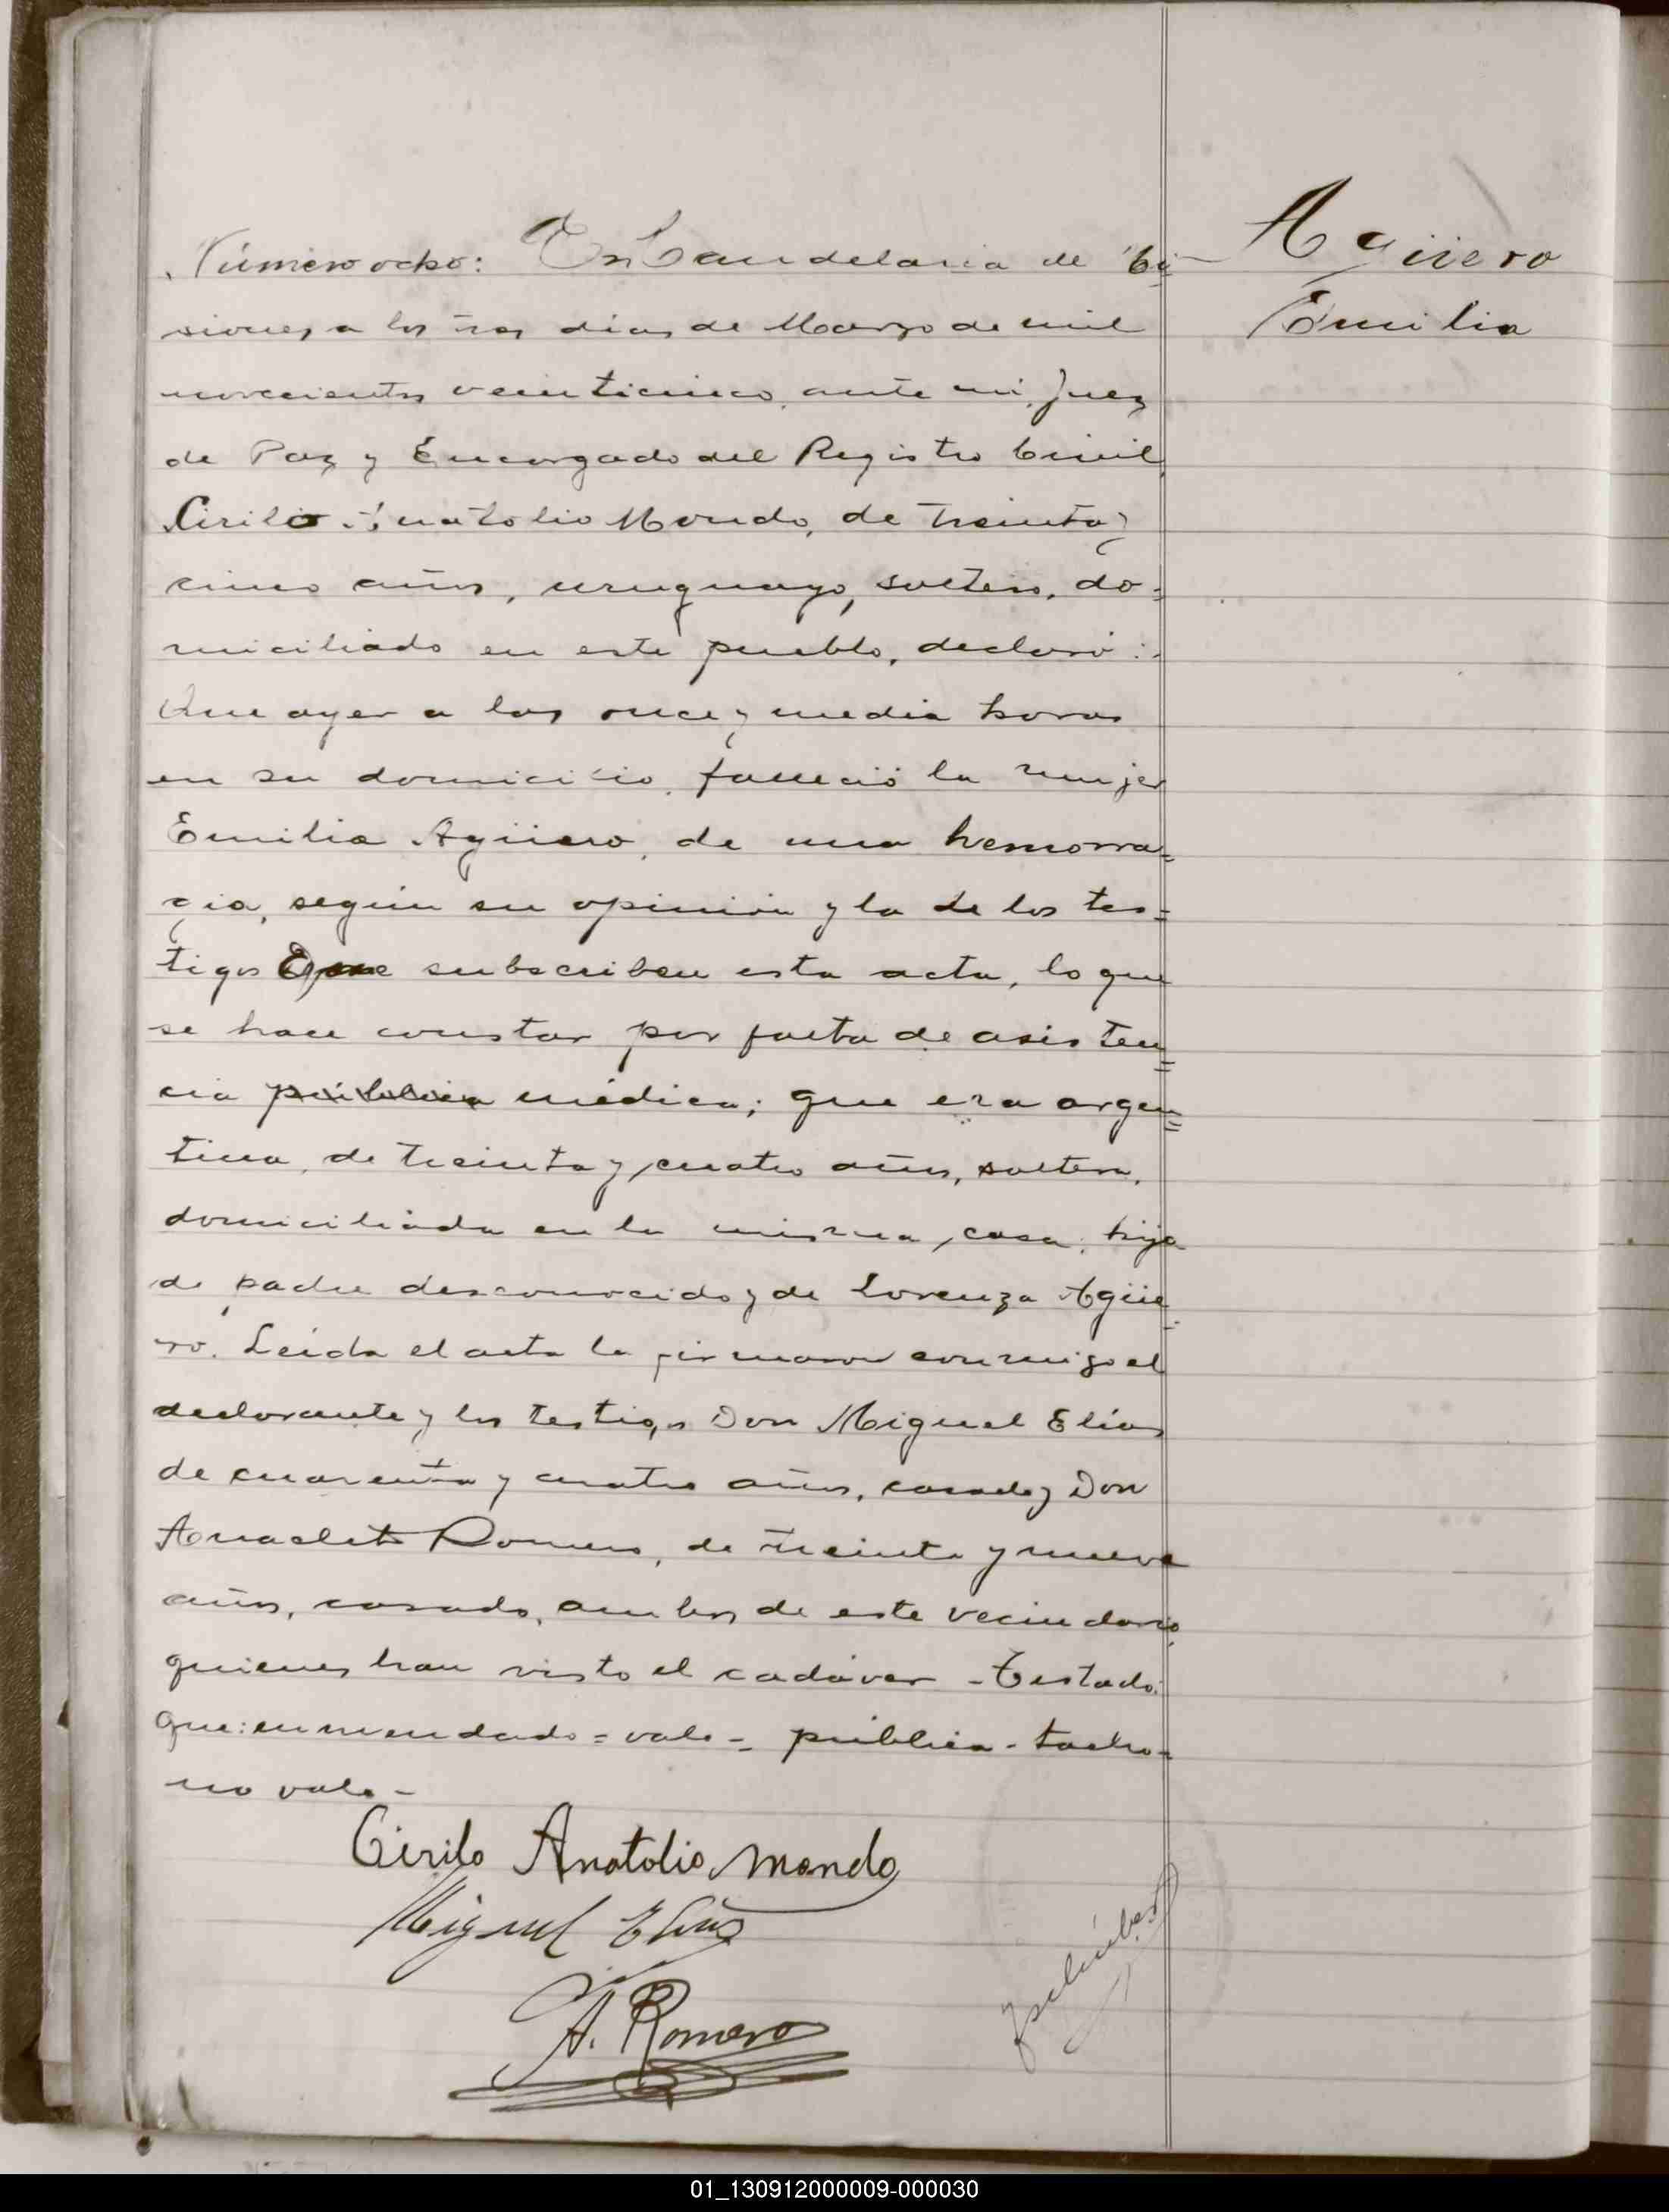 Número ocho: En Candelaria de Mi-
siones a los tres días de Marzo de mil
novecientos veinticinco, ante mi, Juez
de Paz y Encargado del Registro Civil,
Cirilo Anatolio Mondo, de treinta y
cinco años, uruguayo, soltero, do=
miciliado en este pueblo, declaró:
Que ayer a las once y media horas
en su domicilio, falleció la mujer
Emilia Agüero, de una hemorra=
gia, según su opinión y la de los tes=
tigos que subscriben esta acta, lo que
se hace constar por falta de asisten=
cia pública médica; que era argen=
tina, de treinta y cuatro años, soltera,
domiciliada en la misma casa, hija
de padre desconocido y de Lorenza Agüe
ro. Leída el acta la firmaron conmigo el
declarante y los testigos Don Miguel Elías
de cuarenta y cuatro años, casado y Don
Anacleto Romero, de treinta y nueve
años, casado, ambos de este vecindario
quienes han visto el cadáver - Testado:
que: enmendado = vale - pública - tacho-
no vale -
Cirilo Anatolio Mondo
Miguel Elías
A. Romero
Agüero
Emilia
01_130912000009-000030